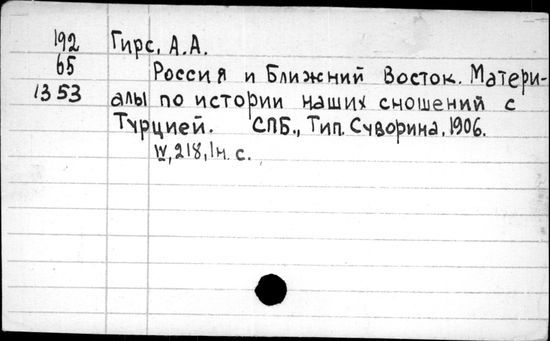 192 Гирс, А.А.
65 Россия и Ближний Восток. Матери-
1353 алы по истории наших сношений с
Турцией. СПБ., Тип. Суворина, 1906.
IV, 218, 1н. с.